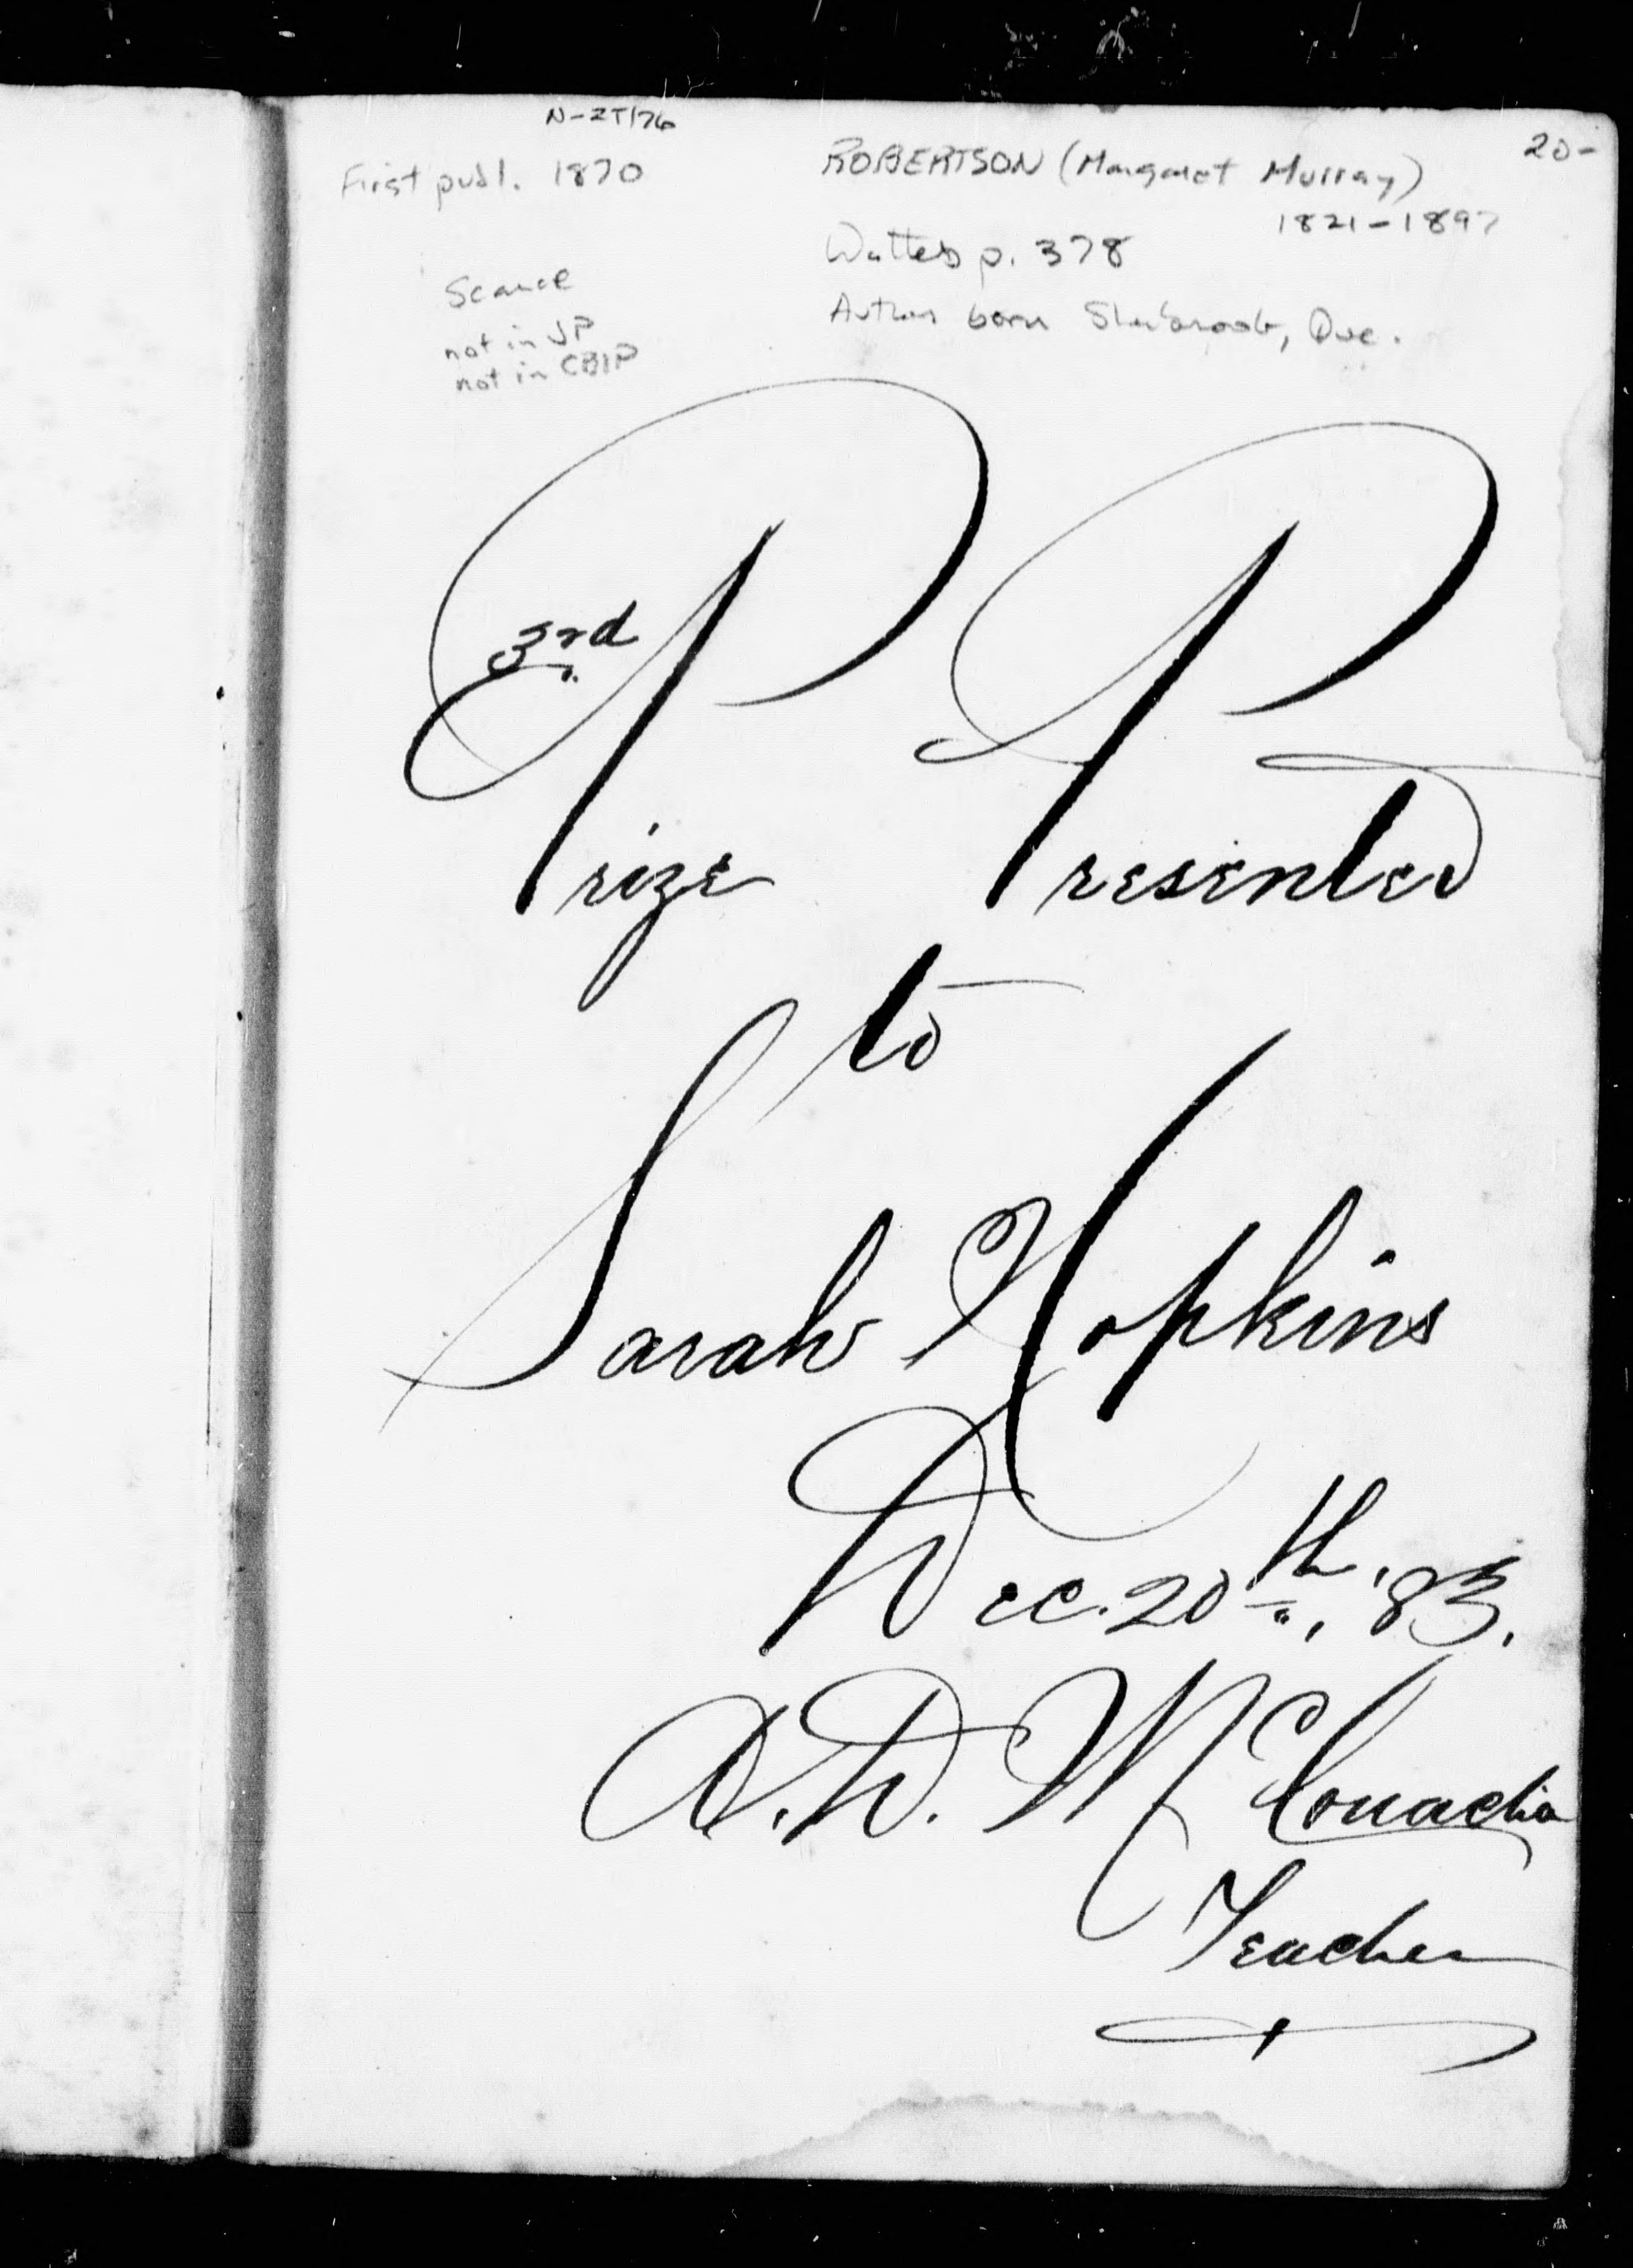 N-ZT/76
20-
First publ. 1870
ROBERTSON (Margaret Murray)
1821-1897
Watters p. 378
Scarce
Author born Sherbrooke, Que.
not in JP
not in CBIP
3rd
Prize Presented
to
Sarah Hopkins
Dec. 20th, '83.
A. D. McConachie
Teacher